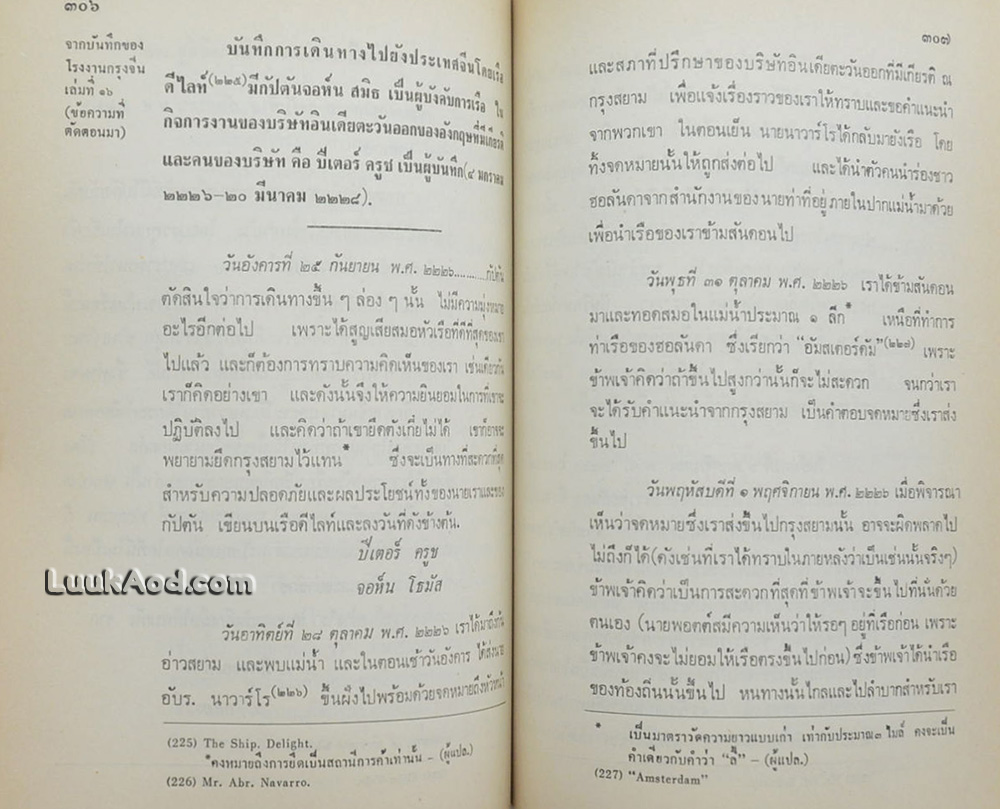 ๓๐๖
จากบันทึกของ
โรงงานกรุงจีน
เล่มที่ ๑๖
(ข้อความที่
ตัดตอนมา)
บันทึกการเดินทางไปยังประเทศจีนโดยเรือ
ดีไลท์(๒๒๕)มีกัปตันจอห์น สมิธ เป็นผู้บังคับการเรือ ใน
กิจการงานของบริษัทอินเดียตะวันออกของอังกฤษที่มีเกียรติ
และคนของบริษัท คือ ปีเตอร์ ครูช เป็นผู้บันทึก(๔ มกราคม
๒๒๒๖–๒๐ มีนาคม ๒๒๒๘).
วันอังคารที่ ๒๕ กันยายน พ.ศ. ๒๒๒๖..........กัปตัน
ตัดสินใจว่าการเดินทางขึ้น ๆ ล่อง ๆ นั้น ไม่มีความมุ่งหมาย
อะไรอีกต่อไป เพราะได้สูญเสียสมอหัวเรือที่ดีที่สุดของเขา
ไปแล้ว และก็ต้องการทราบความคิดเห็นของเรา เช่นเดียวกัน
เราก็คิดอย่างเขา และดังนั้นจึงให้ความยินยอมในการที่เขาจะ
ปฏิบัติลงไป และคิดว่าถ้าเขายึดตังเกี๋ยไม่ได้ เขาก็อาจจะ
พยายามยึดกรุงสยามไว้แทน* ซึ่งจะเป็นทางที่สะดวกที่สุด
สำหรับความปลอดภัยและผลประโยชน์ทั้งของนายเราและของ
กัปตัน เขียนบนเรือดีไลท์และลงวันที่ดังข้างต้น.
ปีเตอร์ ครูช
จอห์น โธมัส
LuukAod.com
วันอาทิตย์ที่ ๒๘ ตุลาคม พ.ศ. ๒๒๒๖ เราได้มาถึงก้น
อ่าวสยาม และพบแม่น้ำ และในตอนเช้าวันอังคาร ได้ส่งนาย
อับร. นาวาร์โร(๒๒๖) ขึ้นฝั่งไปพร้อมด้วยจดหมายถึงหัวหน้า
(225) The Ship. Delight.
*คงหมายถึงการยึดเป็นสถานีการค้าเท่านั้น – (ผู้แปล.)
(226) Mr. Abr. Navarro.
๓๐๗
และสภาที่ปรึกษาของบริษัทอินเดียตะวันออกที่มีเกียรติ ณ
กรุงสยาม เพื่อแจ้งเรื่องราวของเราให้ทราบและขอคำแนะนำ
จากพวกเขา ในตอนเย็น นายนาวาร์โรได้กลับมายังเรือ โดย
ทิ้งจดหมายนั้นให้ถูกส่งต่อไป และได้นำตัวคนนำร่องชาว
ฮอลันดาจากสำนักงานของนายท่าที่อยู่ภายในปากแม่น้ำมาด้วย
เพื่อนำเรือของเราข้ามสันดอนไป
วันพุธที่ ๓๑ ตุลาคม พ.ศ. ๒๒๒๖ เราได้ข้ามสันดอน
มาและทอดสมอในแม่น้ำประมาณ ๑ ลีก* เหนือที่ทำการ
ท่าเรือของฮอลันดา ซึ่งเรียกว่า “อัมสเตอร์ดัม”(๒๒๗) เพราะ
ข้าพเจ้าคิดว่าถ้าขึ้นไปสูงกว่านั้นก็จะไม่สะดวก จนกว่าเรา
จะได้รับคำแนะนำจากกรุงสยาม เป็นคำตอบจดหมายซึ่งเราส่ง
ขึ้นไป
วันพฤหัสบดีที่ ๑ พฤศจิกายน พ.ศ. ๒๒๒๖ เมื่อพิจารณา
เห็นว่าจดหมายซึ่งเราส่งขึ้นไปกรุงสยามนั้น อาจจะผิดพลาดไป
ไม่ถึงก็ได้(ดังเช่นที่เราได้ทราบในภายหลังว่าเป็นเช่นนั้นจริงๆ)
ข้าพเจ้าคิดว่าเป็นการสะดวกที่สุดที่ข้าพเจ้าจะขึ้นไปที่นั่นด้วย
ตนเอง (นายพอตต์สมีความเห็นว่าให้รอๆ อยู่ที่เรือก่อน เพราะ
ข้าพเจ้าคงจะไม่ยอมให้เรือตรงขึ้นไปก่อน)ซึ่งข้าพเจ้าได้นำเรือ
ของท้องถิ่นนั้นขึ้นไป หนทางนั้นไกลและไปลำบากสำหรับเรา
* เป็นมาตราวัดความยาวแบบเก่า เท่ากับประมาณ๓ ไมล์ คงจะเป็น
คำเดียวกับคำว่า “ลี้” – (ผู้แปล.)
(227) “Amsterdam”